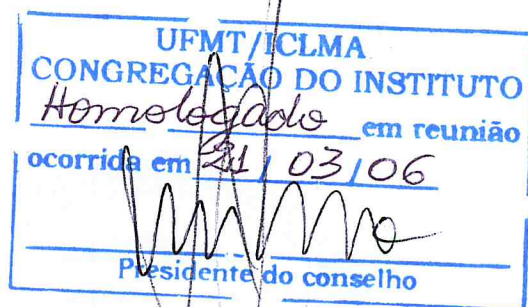 UFMT/ICLMA
CONGREGAÇÃO DO INSTITUTO
Homologado em reunião
ocorrida em 21/03/06
Presidente do conselho